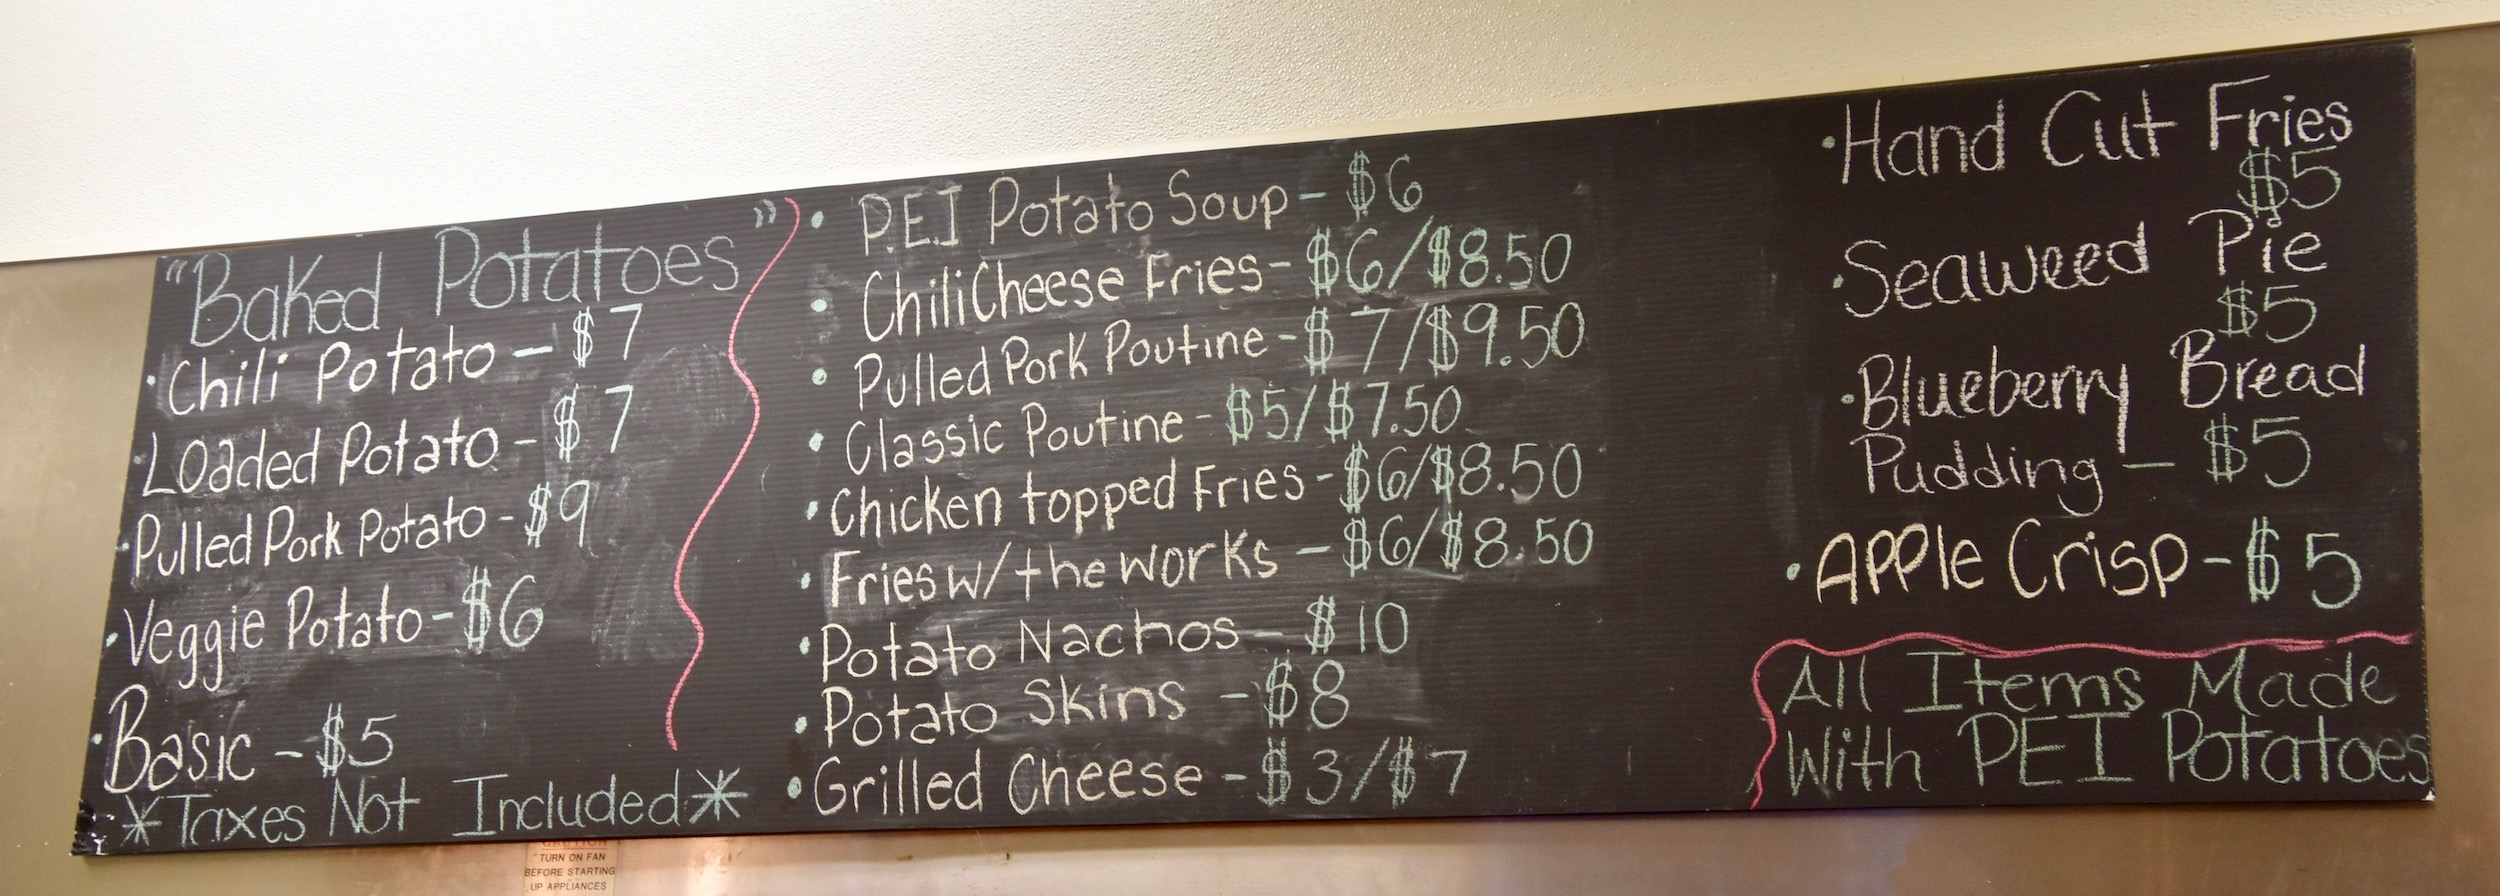 "Baked Potatoes"
• Chili Potato - $7
• Loaded Potato - $7
• Pulled Pork Potato - $9
• Veggie Potato - $6
• Basic - $5
*Taxes Not Included*
• P.E.I Potato Soup - $6
• Chili Cheese Fries - $6/$8.50
• Pulled Pork Poutine - $7/$9.50
• Classic Poutine - $5/$7.50
• Chicken topped Fries - $6/$8.50
• Fries w/ the works - $6/$8.50
• Potato Nachos - $10
• Potato Skins - $8
• Grilled Cheese - $3/$7
• Hand Cut Fries
$5
• Seaweed Pie
$5
• Blueberry Bread
Pudding - $5
• Apple Crisp - $5
All Items Made
With PEI Potatoes
CAUTION
TURN ON FAN
BEFORE STARTING
UP APPLIANCES